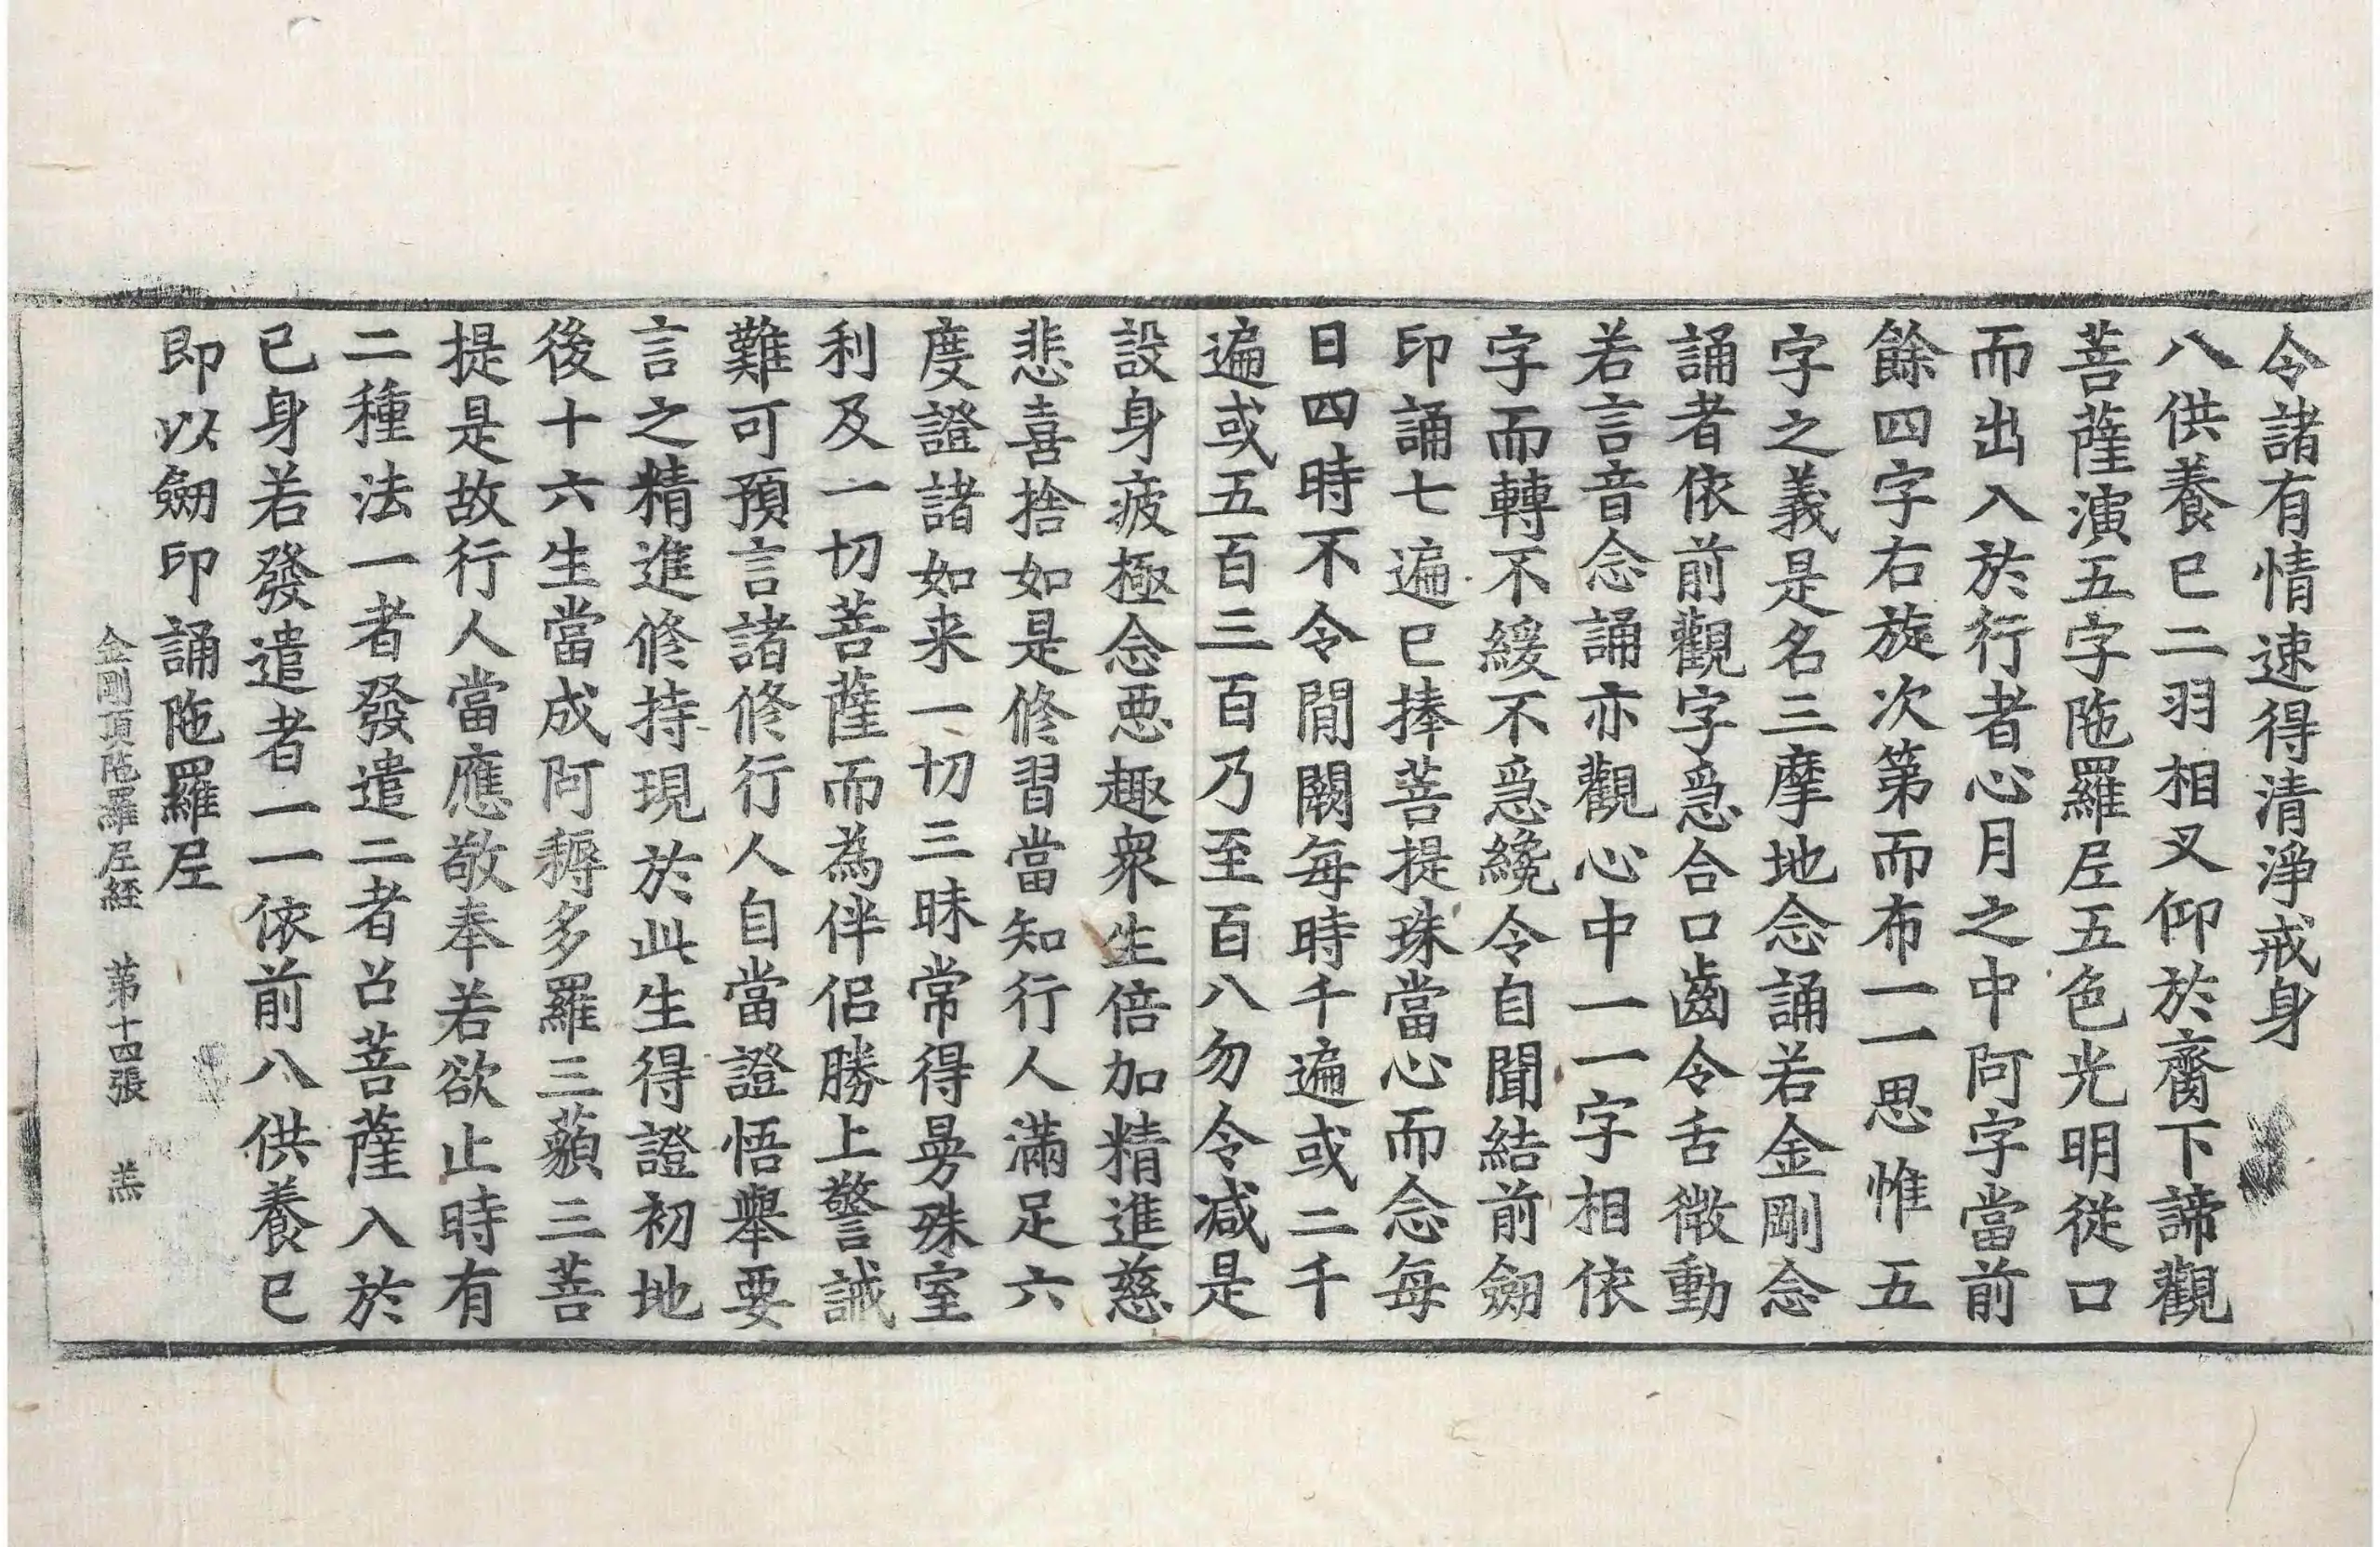 令諸有情速得清淨戒身
八供養已二羽相叉仰於臍下諦觀
菩薩演五字陁羅𡰱五色光明從口
而出入於行者心月之中阿字當前
餘四字右旋次第而布一一思惟五
字之義是名三摩地念誦若金剛念
誦者依前觀字急合口齒令舌微動
若言音念誦亦觀心中一一字相依
字而轉不緩不急纔令自聞結前劒
印誦七遍已捧菩提珠當心而念每
日四時不令間闕每時千遍或二千
遍或五百三百乃至百八勿令减是
設身疲極念惡趣衆生倍加精進慈
悲喜捨如是修習當知行人滿足六
度證諸如来一切三昧常得曼殊室
利及一切菩薩而為伴侶勝上警誡
難可預言諸修行人自當證悟舉要
言之精進修持現於此生得證初地
後十六生當成阿耨多羅三藐三菩
提是故行人當應敬奉若欲止時有
二種法一者發遣二者召菩薩入於
已身若發遣者一一依前八供養已
即以劒印誦陁羅𡰱
金剛頂陁羅𡰱経　第十四張　羔